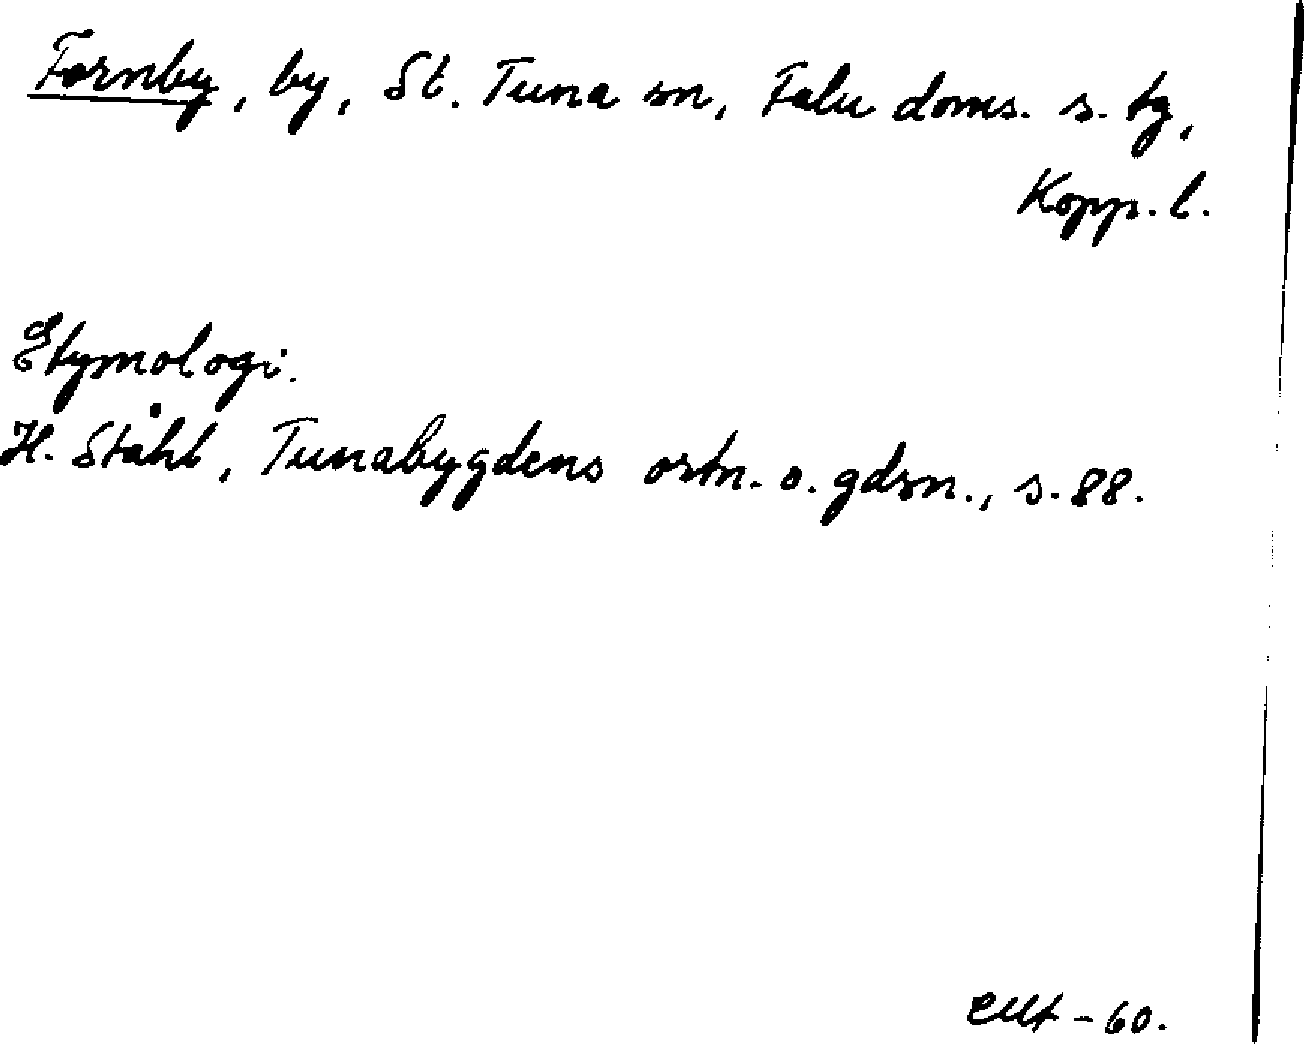 Fornby, by, St. Tuna sn, Falu doms. s. tg,
Kopp. l.
Etymologi.
H. Ståhl, Tunabygdens ortn. o. gdsn., s. 88.
-60.